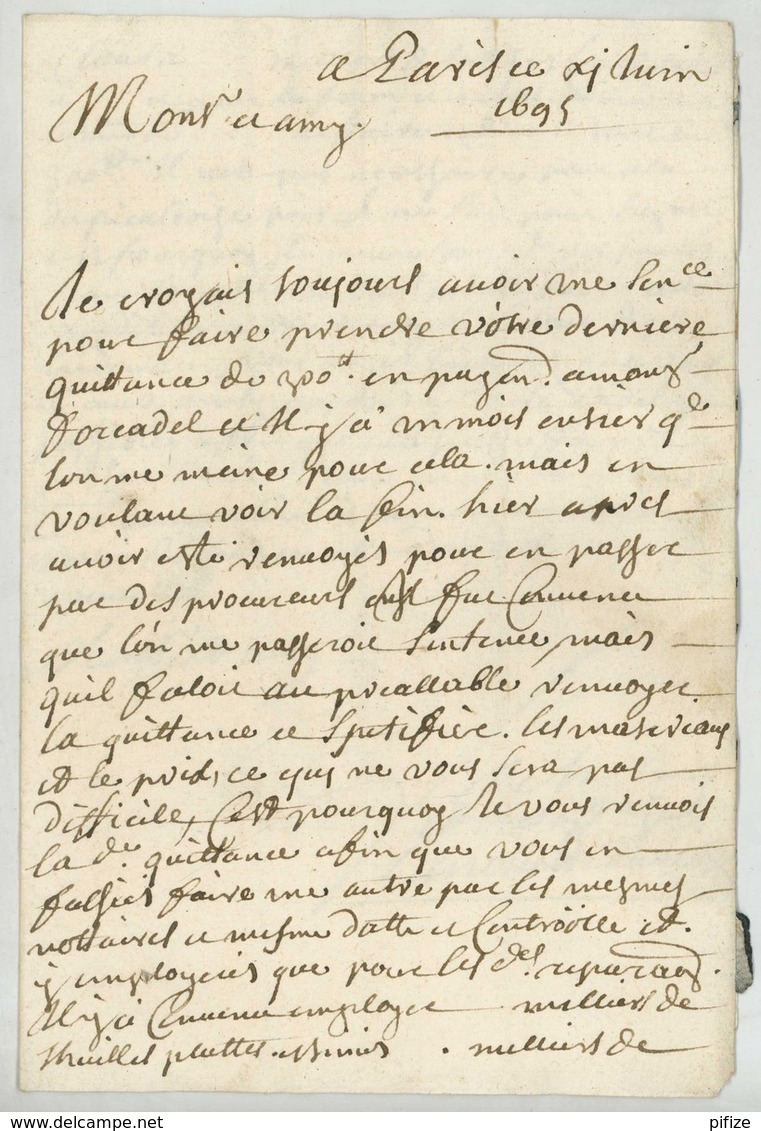 a Paris ce xj Juin
1695
Monsr et amy
Je croyais toujours avoir une Sence
pour faire prendre vôtre derniere
quittance de 300tt. en payend. a monsr
forcadel et Il y a un mois entier qe
lon me meine pour cela. mais en
voulant voir la fin. hier apres
avoir esté renvoyés pour en passer
par des procureurs Il fut Convenu
que lón me passeroit Sentence, mais
quil faloit au preallable renvoyer
la quittance et Spetifier. les materiaux
et le prix, ce qui ne vous sera pas
difficile, C'est pourquoy Je vous renvois
la de. quittance afin que vous en
fassiés faire une autre par les mesmes
nottaires et mesme datte et Controolle et.
y employeés que pour les des. reparaons.
Il y a Convenu employer milliers de
thuilles plattes milliers de
pifize